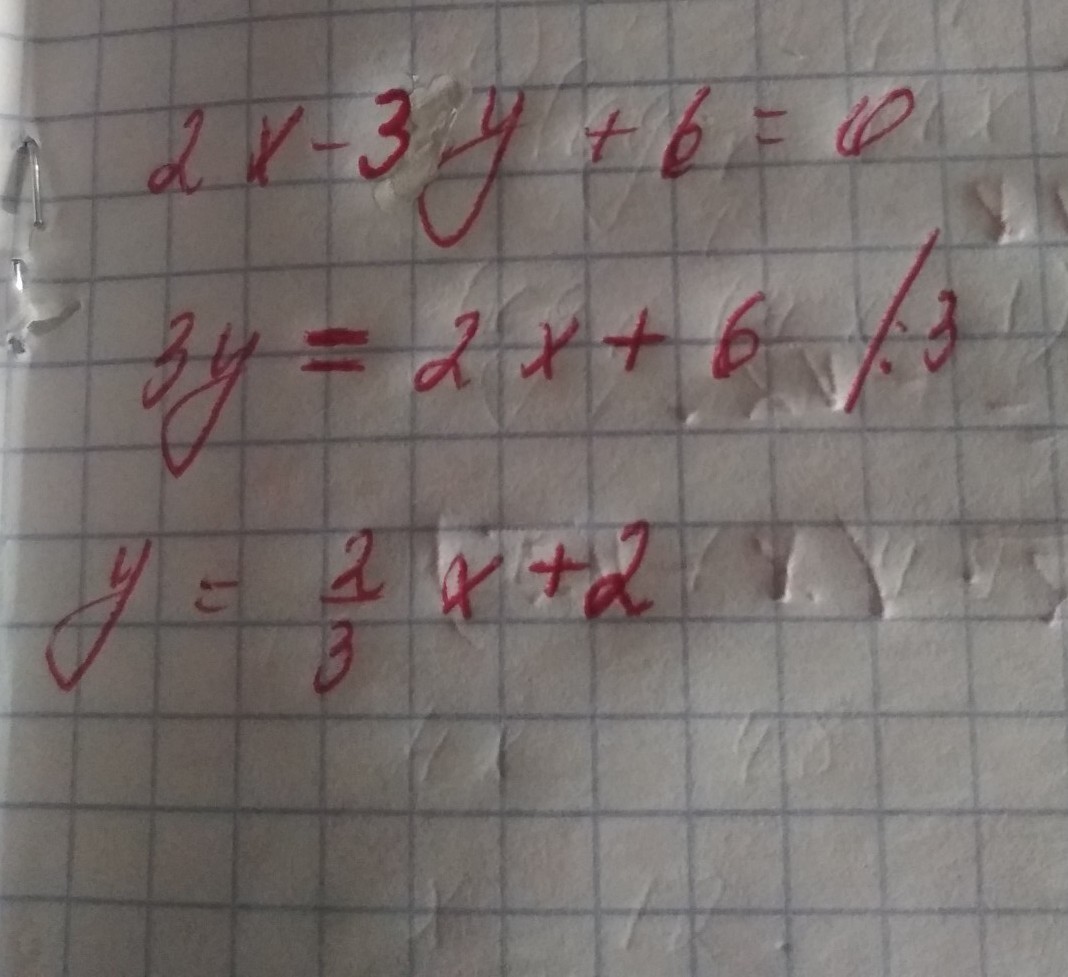 2x - 3y + 6 = 0
3y = 2x + 6 /:3
y = 2/3 x + 2